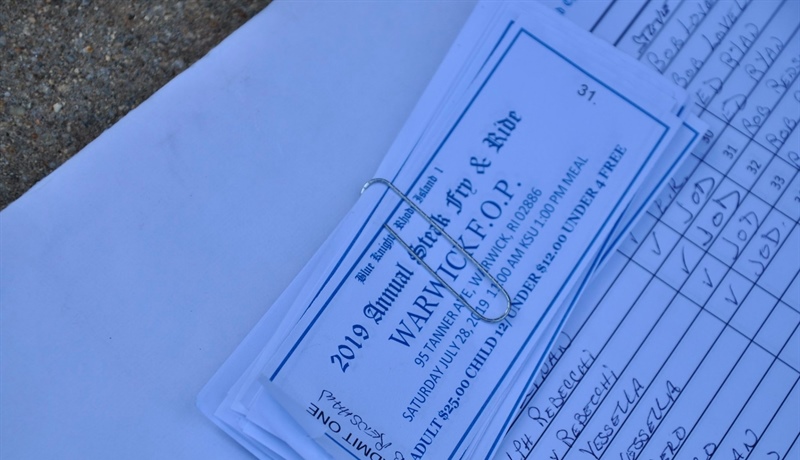 31.
Blue Knights Rhode Island 1
2019 Annual Steak Fry & Ride
WARWICK F.O.P.
95 TANNER AVE, WARWICK, RI 02886
SATURDAY JULY 28, 2019 11:00 AM KSU 1:00 PM MEAL
ADULT $25.00 CHILD 12/UNDER $12.00 UNDER 4 FREE
ADMIT ONE
STEVE
BOB LOVE
BOB LOVEL
ED RYAN
ED RYAN
BOB
BOB
30
31
32
33
✓ JOD
✓ JOD
✓ JOD
✓ JOD.
REBECCHI
REBECCHI
VESSELLA
VESSELLA